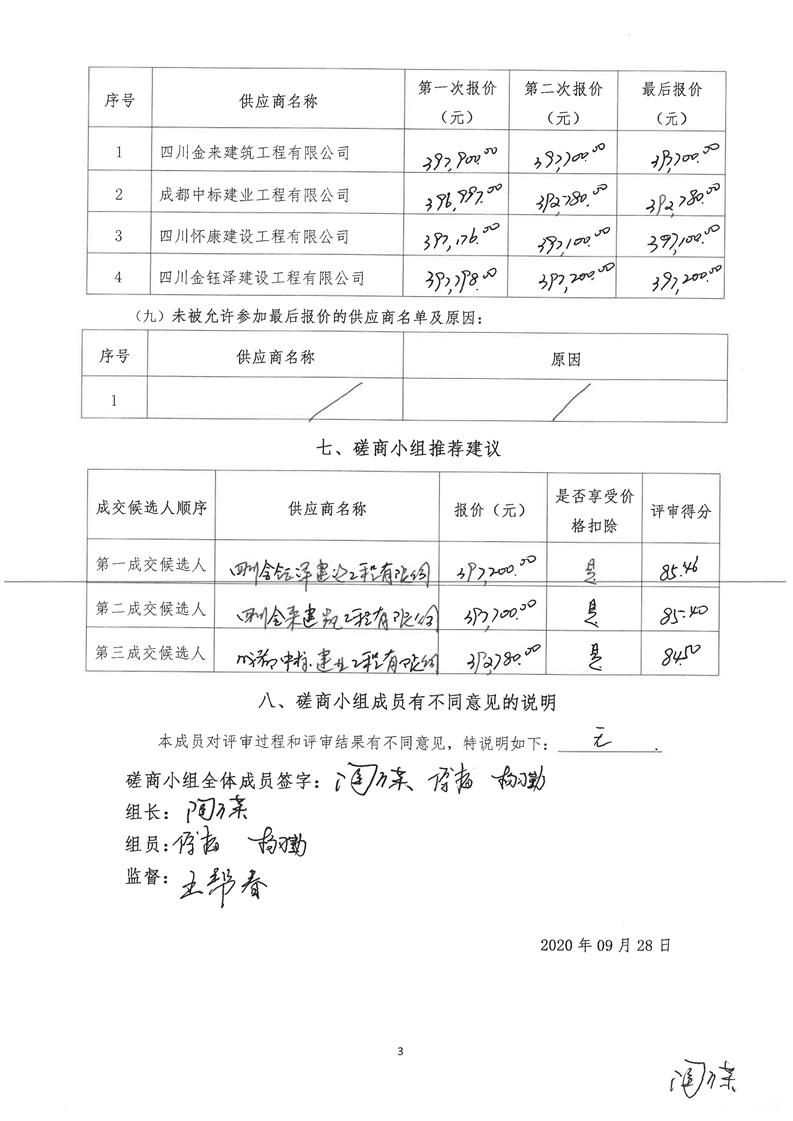 序号 供应商名称 第一次报价（元） 第二次报价（元） 最后报价（元）
1 四川金来建筑工程有限公司 397,900.00 397,700.00 397,700.00
2 成都中标建业工程有限公司 396,997.00 392,780.00 392,780.00
3 四川怀康建设工程有限公司 397,176.00 397,100.00 397,100.00
4 四川金钰泽建设工程有限公司 397,798.00 397,200.00 397,200.00
（九）未被允许参加最后报价的供应商名单及原因：
序号 供应商名称 原因
1 / /
七、磋商小组推荐建议
成交候选人顺序 供应商名称 报价（元） 是否享受价格扣除 评审得分
第一成交候选人 四川金钰泽建设工程有限公司 397,200.00 是 85.46
第二成交候选人 四川金来建筑工程有限公司 397,700.00 是 85.40
第三成交候选人 成都中标建业工程有限公司 392,780.00 是 84.50
八、磋商小组成员有不同意见的说明
本成员对评审过程和评审结果有不同意见，特说明如下：无.
磋商小组全体成员签字：
组长：
组员：
监督：王帮春
2020 年 09 月 28 日
3